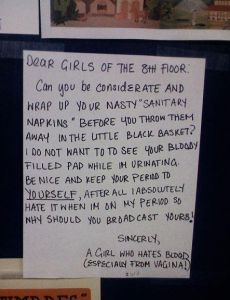 DEAR GIRLS OF THE 8TH FLOOR:
CAN YOU BE CONSIDERATE AND
WRAP UP YOUR NASTY "SANITARY
NAPKINS" BEFORE YOU THROW THEM
AWAY IN THE LITTLE BLACK BASKET?
I DO NOT WANT TO TO SEE YOUR BLOODY
FILLED PAD WHILE IM URINATING.
BE NICE AND KEEP YOUR PERIOD TO
YOURSELF, AFTER ALL I ABSOLUTELY
HATE IT WHEN IM ON MY PERIOD SO
WHY SHOULD YOU BROADCAST YOURS!
SINCERLY,
A GIRL WHO HATES BLOOD
(ESPECIALLY FROM VAGINA!)